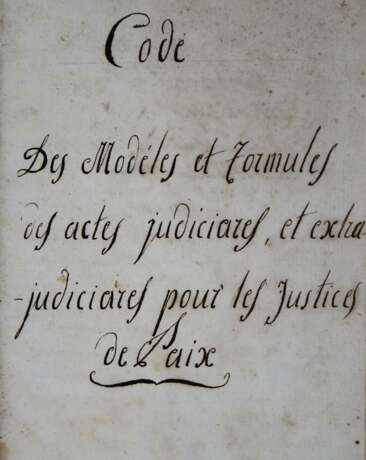 Code
Des Modéles et Formules
des actes judiciares, et extra
-judiciares pour les Justices
de Paix